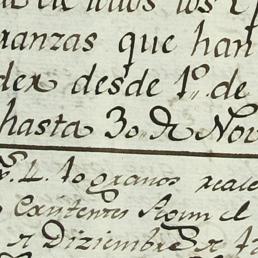 todos los
ranzas que han
der desde 1º. de
hasta 30. de Nov
4. 10 granos reale
Existentes
de Diziembre de